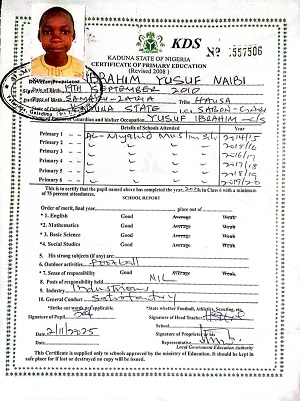 KDS No 1557506
KADUNA STATE OF NIGERIA
CERTIFICATE OF PRIMARY EDUCATION
(Revised 2008)
IBRAHIM YUSUF NAIBI
14TH SEPTEMBER 2010
SAMARU-ZARIA Tribe HAUSA
KADUNA STATE SABON-GARI
and higher Occupation YUSUF IBRAHIM C/S
Details of Schools Attended Year
Primary 1 2014/15
Primary 2 2015/16
Primary 3 2016/17
Primary 4 2017/18
Primary 5 2018/19
Primary 6 2019/20
This is to certify that the pupil named above has completed the year, in Class 6 with a minimum of
75 percent attendances.
SCHOOL REPORT
Order of merit, final year, place out of
*1. English Good Average Weak
*2. Mathematics Good Average Weak
*3. Basic Science Good Average Weak
*4. Social Studies Good Average Weak
5. His strong subjects (if any) are:
6. Outdoor activities: Football
*7. Sense of responsibility Good Average Weak
8. Posts of responsibility held NIL
9. Industry Industrious
10. General Conduct Satisfactory
*Strike out words not applicable. *State whether Football, Athletics, Scouting, etc.
Signature of Pupil Signature of Head Teacher
School
Signature of Proprietor or his
Date 2/11/2025 Representative
Local Government Education Authority
This Certificate is supplied only to schools approved by the ministry of Education. It should be kept in
safe place for if lost or destroyed no copy will be issued.